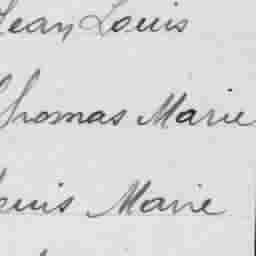 Jean Louis
Thomas Marie
Louis Marie